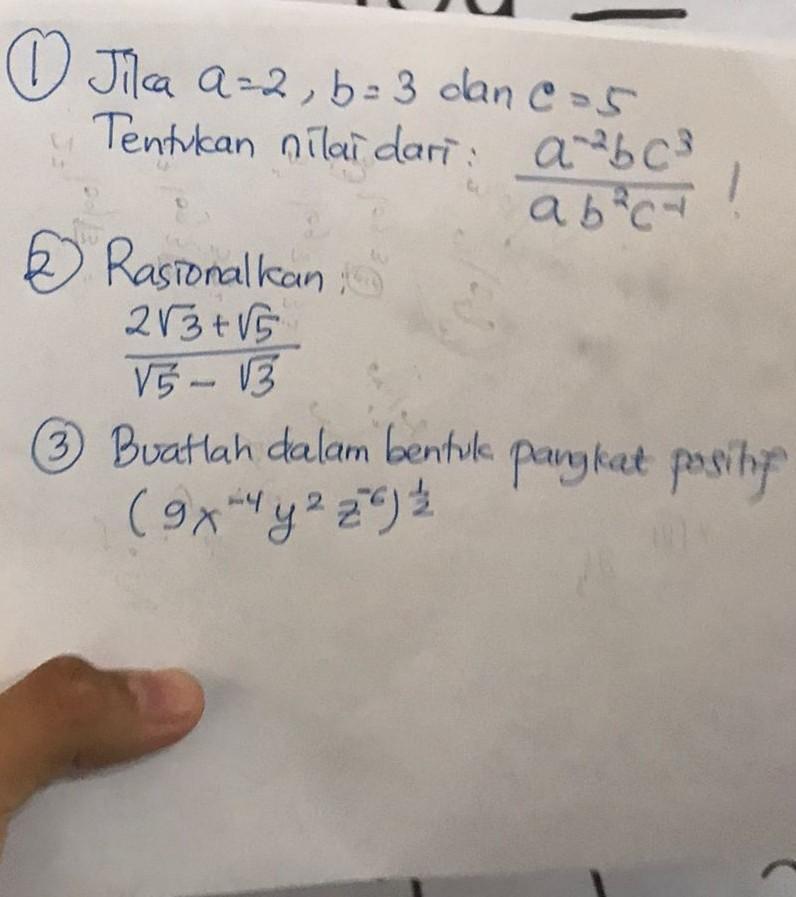 ① Jika a=2, b=3 dan c=5
Tentukan nilai dari: a⁻²bc³ / ab²c⁻¹ !
② Rasionalkan:
2√3+√5 / √5-√3
③ Buatlah dalam bentuk pangkat positif
(9x⁻⁴y²z⁻⁶)^½